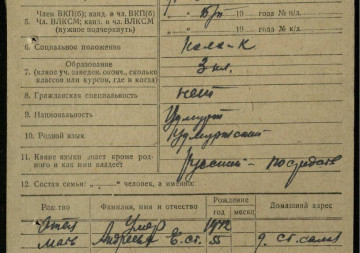 Член ВКП(б); канд. в чл. ВКП(б)
5. Чл. ВЛКСМ; канд. в чл. ВЛКСМ
(нужное подчеркнуть)
б/п 19 года № п/д.
19 года № к/к.
6. Социальное положение
7. Образование 3 кл.
(какое уч. заведен. оконч., сколько
классов или курсов, где и когда)
8. Гражданская специальность нет
9. Национальность Удмурт
10. Родной язык Удмуртский
11. Какие языки знает кроме род-
ного и как ими владеет Русский - посредств
12. Состав семьи: „ . . . “ человек, а именно:
Родство Фамилия, имя и отчество Рождение Домашний адрес
год месяц
Отец Умер 1942
Мать Андреева Е. Ст. 55 д. Ст.